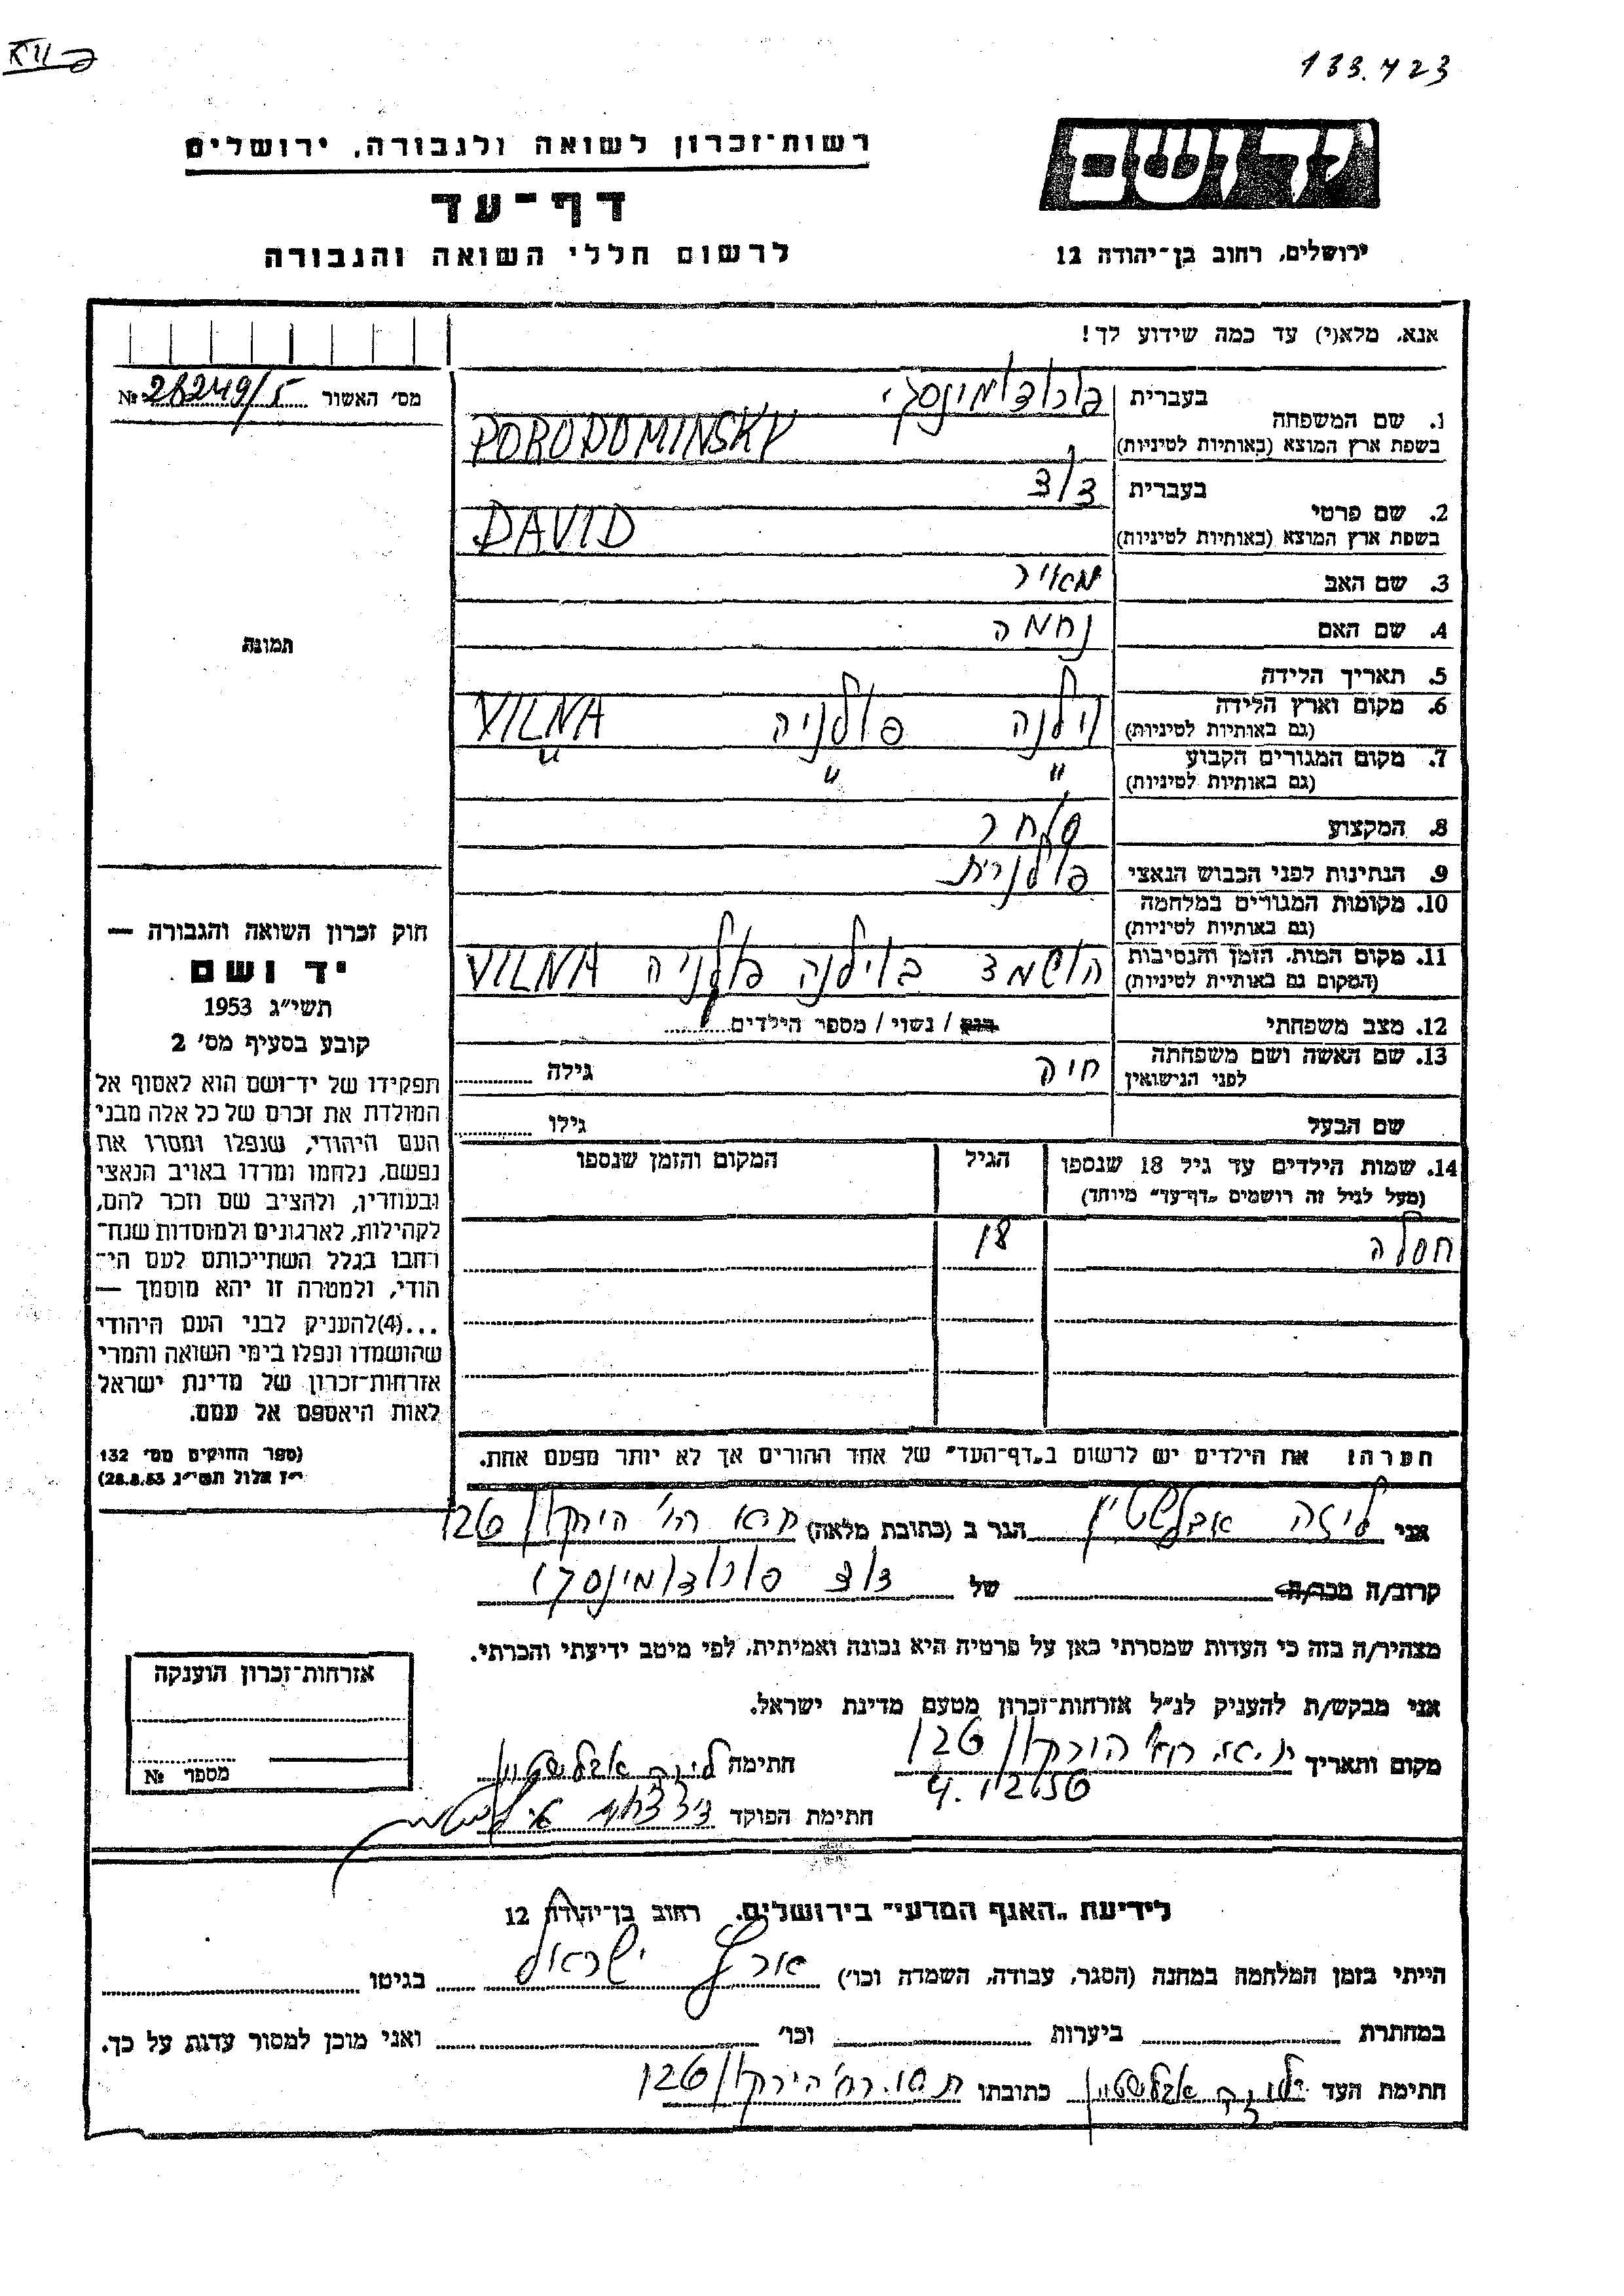 133.423
רשות-זכרון לשואה ולגבורה, ירושלים
יד ושם
דף-עד
לרשום חללי השואה והגבורה
ירושלים, רחוב בן-יהודה 12
אנא, מלא(י) עד כמה שידוע לך!
מס' האשור 28249/5 №
1. שם המשפחה
בעברית פורודומינסקי
בשפת ארץ המוצא (באותיות לטיניות) PORODOMINSKY
2. שם פרטי
בעברית דוד
בשפת ארץ המוצא (באותיות לטיניות) DAVID
3. שם האב מאיר
4. שם האם נחמה
תמונה
5. תאריך הלידה
6. מקום וארץ הלידה וילנה פולניה VILNA
(גם באותיות לטיניות)
7. מקום המגורים הקבוע " " "
(גם באותיות לטיניות)
8. המקצוע סוחר
9. הנתינות לפני הכבוש הנאצי פולנית
10. מקומות המגורים במלחמה
(גם באותיות לטיניות)
11. מקום המות, הזמן והנסיבות הושמד בוילנה פולניה VILNA
(המקום גם באותיות לטיניות)
12. מצב משפחתי רווק / נשוי / מספר הילדים
13. שם האשה ושם משפחתה חיה גילה
לפני הנישואין
שם הבעל גילו
14. שמות הילדים עד גיל 18 שנספו הגיל המקום והזמן שנספו
(מעל לגיל זה רושמים „דף-עד" מיוחד)
18
הערה: את הילדים יש לרשום ב„דף-העד" של אחד ההורים אך לא יותר מפעם אחת.
חוק זכרון השואה והגבורה —
יד ושם
תשי"ג 1953
קובע בסעיף מס' 2
תפקידו של יד-ושם הוא לאסוף אל
המולדת את זכרם של כל אלה מבני
העם היהודי, שנפלו ומסרו את
נפשם, נלחמו ומרדו באויב הנאצי
ובעוזריו, ולהציב שם וזכר להם,
לקהילות, לארגונים ולמוסדות שנח-
רבו בגלל השתייכותם לעם הי-
הודי, ולמטרה זו יהא מוסמך —
...(4)להעניק לבני העם היהודי
שהושמדו ונפלו בימי השואה והמרי
אזרחות-זכרון של מדינת ישראל
לאות היאספם אל עמם.
(ספר החוקים מס' 132
י"ז אלול תשי"ג 28.8.53)
אני ליזה אבלשטין הגר ב (כתובת מלאה) ת"א רח' הירקון 126
קרוב/ה מכר/ה של דוד פורודומינסקי
מצהיר/ה בזה כי העדות שמסרתי כאן על פרטיה היא נכונה ואמיתית, לפי מיטב ידיעתי והכרתי.
אני מבקש/ת להעניק לנ"ל אזרחות-זכרון מטעם מדינת ישראל.
מקום ותאריך ת"א רח' הירקון 126 חתימה ליזה אבלשטין
4.12.56
חתימת הפוקד
אזרחות-זכרון הוענקה
מספר №
לידיעת „האגף המדעי" בירושלים, רחוב בן-יהודה 12
הייתי בזמן המלחמה במחנה (הסגר, עבודה, השמדה וכו') ארץ ישראל בגיטו
במחתרת ביערות וכו' ואני מוכן למסור עדות על כך.
חתימת העד ליזה אבלשטין כתובתו ת"א רח' הירקון 126